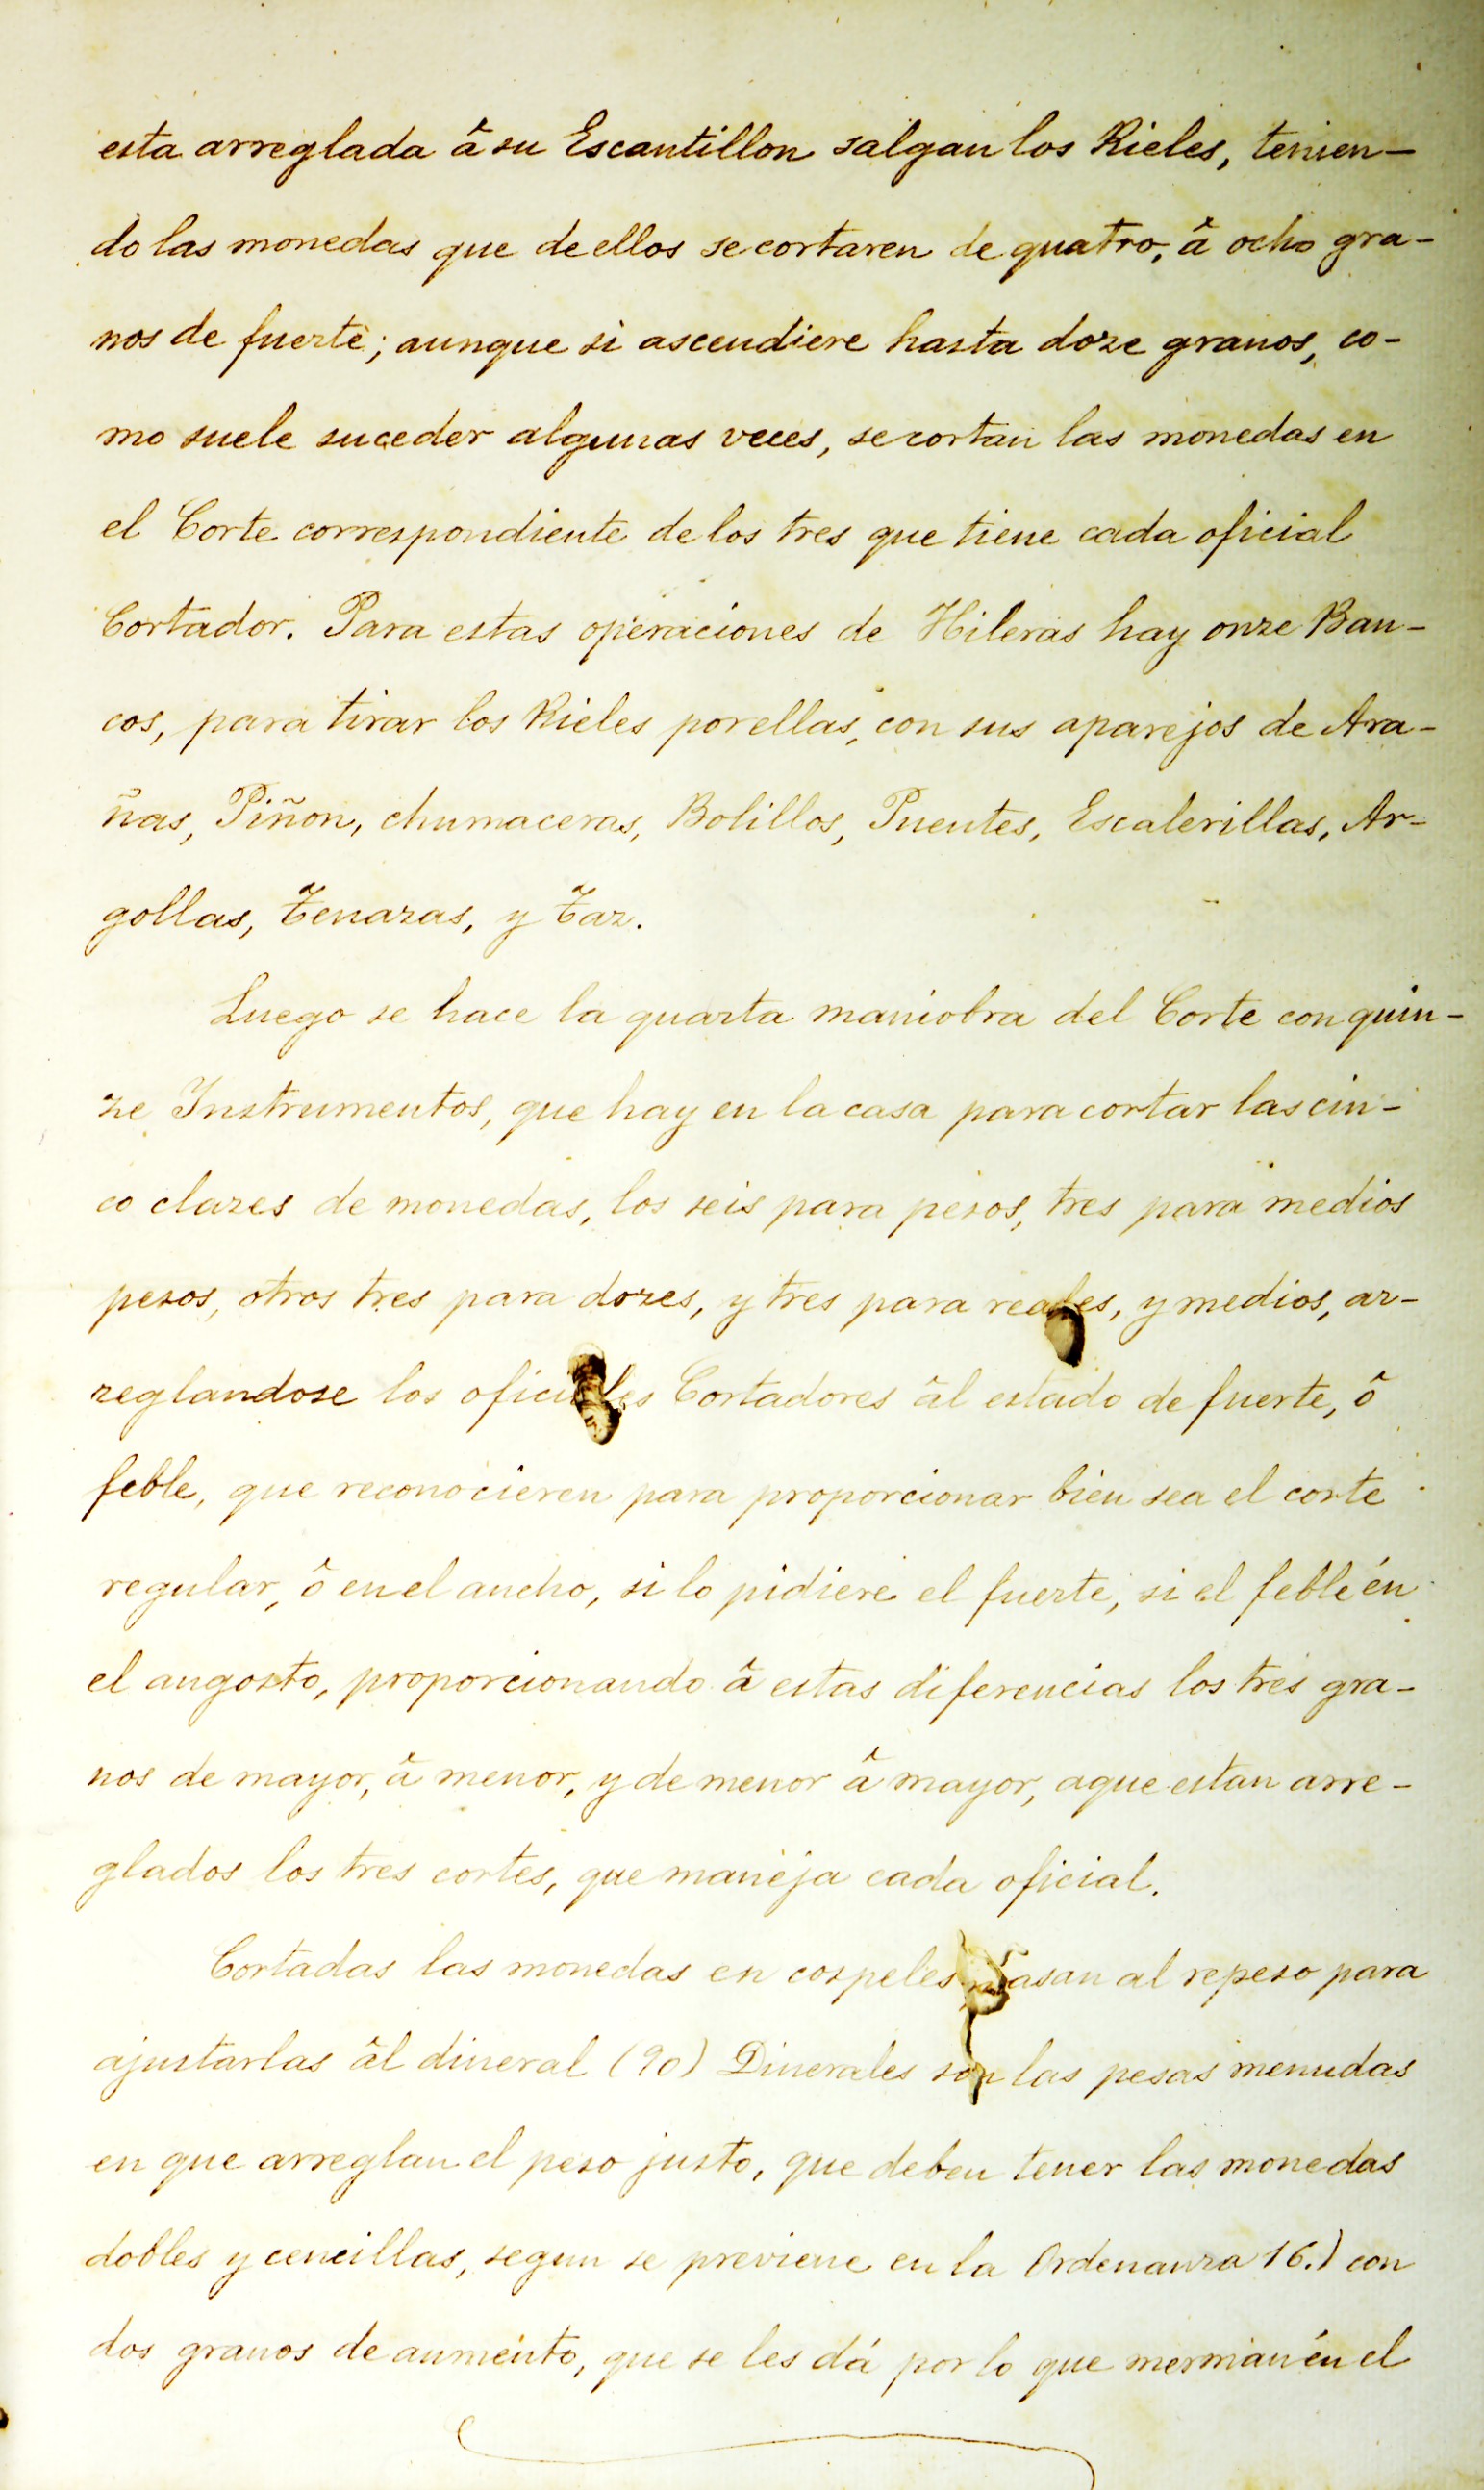 esta arreglada â su Escantillon salgan los Rieles, tenien-
do las monedas que de ellos se cortaren de quatro, â ocho gra-
nos de fuerte; aunque si ascendiere hasta doze granos, co-
mo suele suceder algunas veces, se cortan las monedas en
el Corte correspondiente de los tres que tiene cada oficial
Cortador. Para estas operaciones de Hileras hay onze Ban-
cos, para tirar los Rieles por ellas, con sus aparejos de Ara-
ñas, Piñon, chumaceras, Bolillos, Puentes, Escalerillas, Ar-
gollas, Tenazas, y Taz.
Luego se hace la quarta maniobra del Corte con quin-
ze Instrumentos, que hay en la casa para cortar las cin-
co clazes de monedas, los seis para pesos, tres para medios
pesos, otros tres para dozes, y tres para reales, y medios, ar-
reglandose los oficiales Cortadores âl estado de fuerte, ô
feble, que reconocieren para proporcionar bien sea el corte
regular, ô en el ancho, si lo pidiere el fuerte, si el feble én
el angosto, proporcionando â estas diferencias los tres gra-
nos de mayor, â menor, y de menor â mayor, aque estan arre-
glados los tres cortes, que maneja cada oficial.
Cortadas las monedas en cospeles pasan al repeso para
ajustarlas âl dineral (90) Dinerales son las pesas menudas
en que arreglan el peso justo, que deben tener las monedas
dobles y cencillas, segun se previene en la Ordenanza 16.) con
dos granos de aumento, que se les dá por lo que merman én el